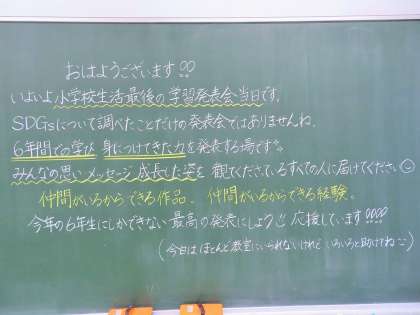 おはようございます!!
いよいよ小学校生活最後の学習発表会当日です。
SDGsについて調べたことだけの発表会ではありませんね。
6年間での学び 身につけてきた力を発表する場です。
みんなの思い・メッセージ、成長した姿を 観てくださっているすべての人に届けてください☺
仲間がいるからできる作品。 仲間がいるからできる経験。
今年の6年生にしかできない 最高の発表にしよう!! 応援しています!!!!
(今日はほとんど教室にいられないけれど いろいろと助けてね